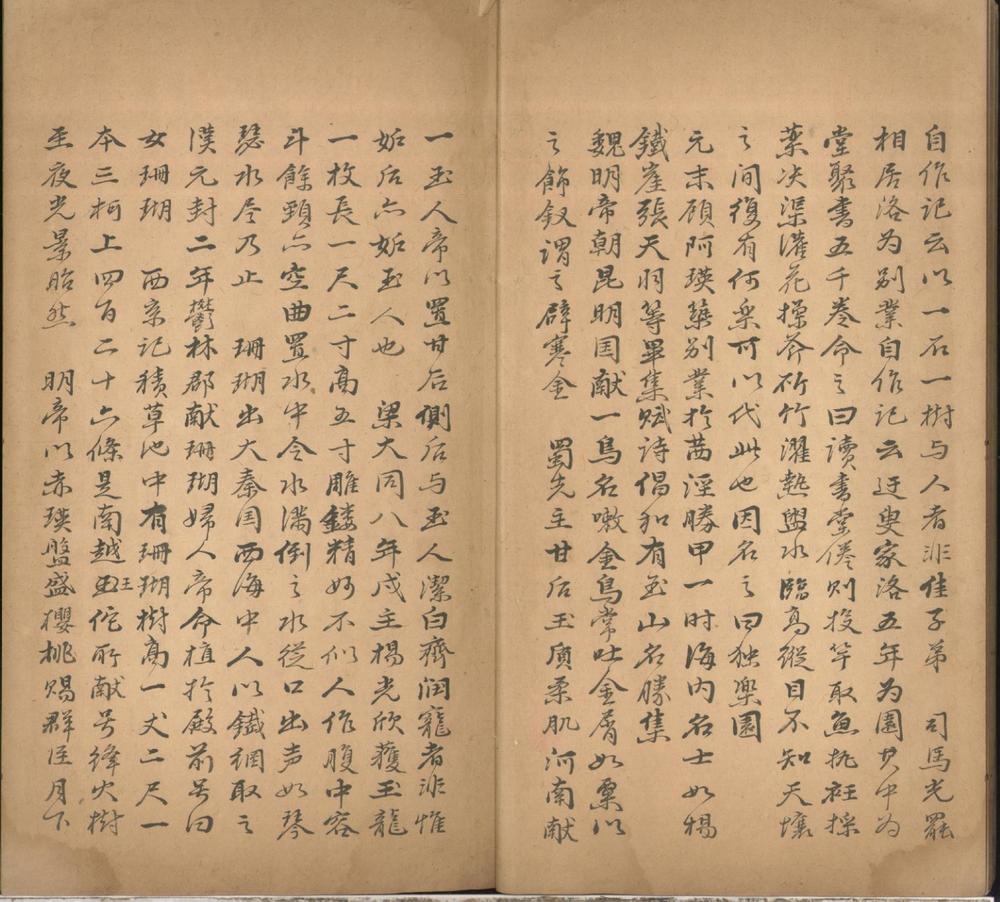 自作記云以一石一樹与人者非佳子弟　司馬光罷
相居洛为别業自作记云迂叟家洛五年为園其中为
堂聚書五千卷命之曰讀書堂倦则投竿取魚执衽採
薬决渠灌花操斧斫竹濯熱盥水臨高縱目不知天壤
之间復有何楽可以代此也因名之曰独楽園
元末顾阿瑛築别業於茜涇勝甲一时海内名士如楊
鐵崖張天羽等畢集赋诗倡和有玉山名勝集
魏明帝朝昆明国献一鳥名嗽金鳥常吐金屑如粟以
之飾釵谓之辟寒金　蜀先主甘后玉质柔肌河南献
一玉人帝以置甘后側后与玉人潔白齊润寵者非惟
妬后亦妬玉人也　梁大同八年戍主楊光欣獲玉龍
一枚長一尺二寸高五寸雕鏤精妙不似人作腹中容
斗餘頸亦空曲置水中令水滿倒之水従口出声如琴
瑟水尽乃止　珊瑚出大秦国西海中人以鐵網取之
漢元封二年欝林郡献珊瑚婦人帝命植於殿前号曰
女珊瑚　西京记積草池中有珊瑚樹高一丈二尺一
本三柯上四百六十六條是南越王佗所献号绛火樹
至夜光景眙然　明帝以赤瑛盤盛櫻桃赐群臣月下